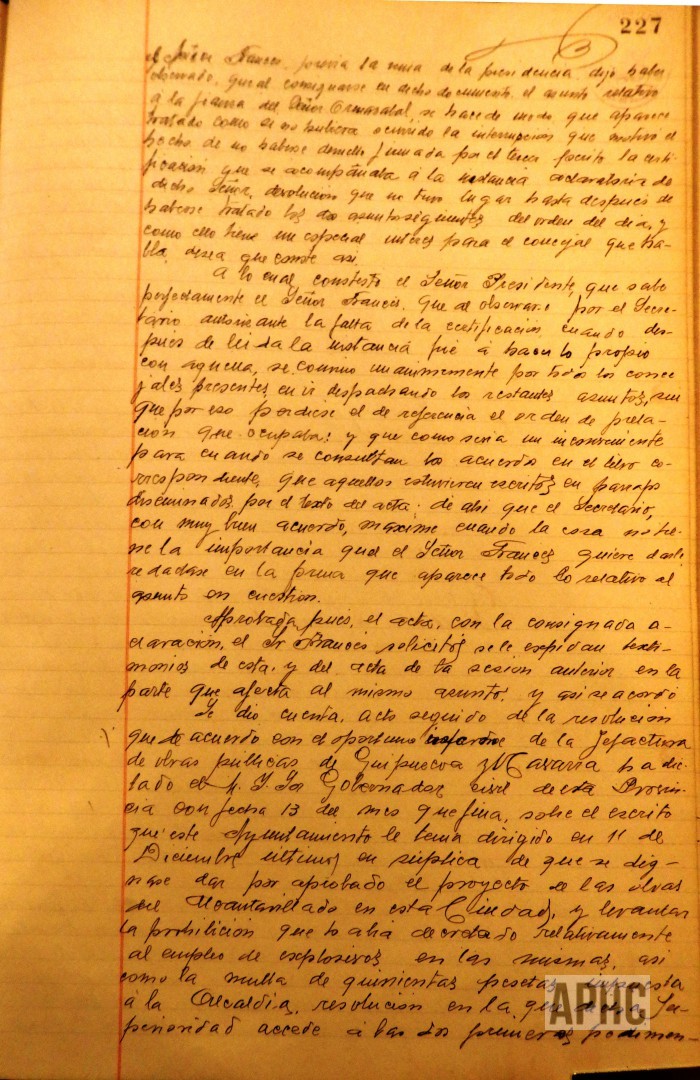 227
el Señor Francés previa la venia de la presidencia dijo haber
observado, que al consignarse en dicho documento el asunto relativo
á la fianza del Señor Ormazabal, se hace de modo que aparece
tratado como si no hubiera ocurrido la interrupcion que motivó el
hecho de no haberse devuelto firmada por el la certi-
ficacion que se acompañaba á la instancia aclaratoria de
dicho Señor, devolucion que no tuvo lugar hasta despues de
haberse tratado los dos asuntos siguientes del orden del dia, y
como ello tiene un especial interes para el concejal que ha-
bla, desea que conste asi.
A lo cual contestó el Señor Presidente, que sabe
perfectamente el Señor Francés. Que al observarse por el Secre-
tario autorizante la falta de la certificacion cuando des-
pues de leida la instancia fué á hacer lo propio
con aquella, se convino unanimemente por todos los conce-
jales presentes, en ir despachando los restantes asuntos, sin
que por eso perdiese el de referencia el orden de prela-
cion que ocupaba; y que como seria un inconveniente
para cuando se consultan los acuerdos en el libro co-
rrespondiente, que aquellos estuvieran escritos en parrafos
diseminados por el texto del acta; de ahi que el Secretario,
con muy buen acuerdo, maxime cuando la cosa no tie-
ne la importancia que el Señor Francés quiere darle
redactase en la forma que aparece todo lo relativo al
asunto en cuestion.
Aprobada, pues, el acta, con la consignada a-
claracion, el Sr Francés solicitó, se le expidan testi-
monios de esta, y del acta de la sesion anterior en la
parte que afecta al mismo asunto, y asi se acordó
Se dio cuenta, acto seguido de la resolucion
que de acuerdo con el oportuno informe de la Jefactura
de obras públicas de Guipuzcoa y Navarra ha dic-
tado el M. Y. Sr Gobernador civil de esta Provin-
cia con fecha 13 del mes que fina, sobre el escrito
que este Ayuntamiento le tenia dirigido en 1º de
Diciembre ultimo, en suplica de que se dig-
nase dar por aprobado el proyecto de las obras
del Alcantarillado en esta Ciudad, y levantar
la prohibicion que habia decretado relativamente
al empleo de explosivos en las mismas, asi
como la multa de quinientas pesetas impuesta
á la Alcaldia, resolucion en la que dicha Su-
perioridad accede á los dos primeros pedimen-
APHC